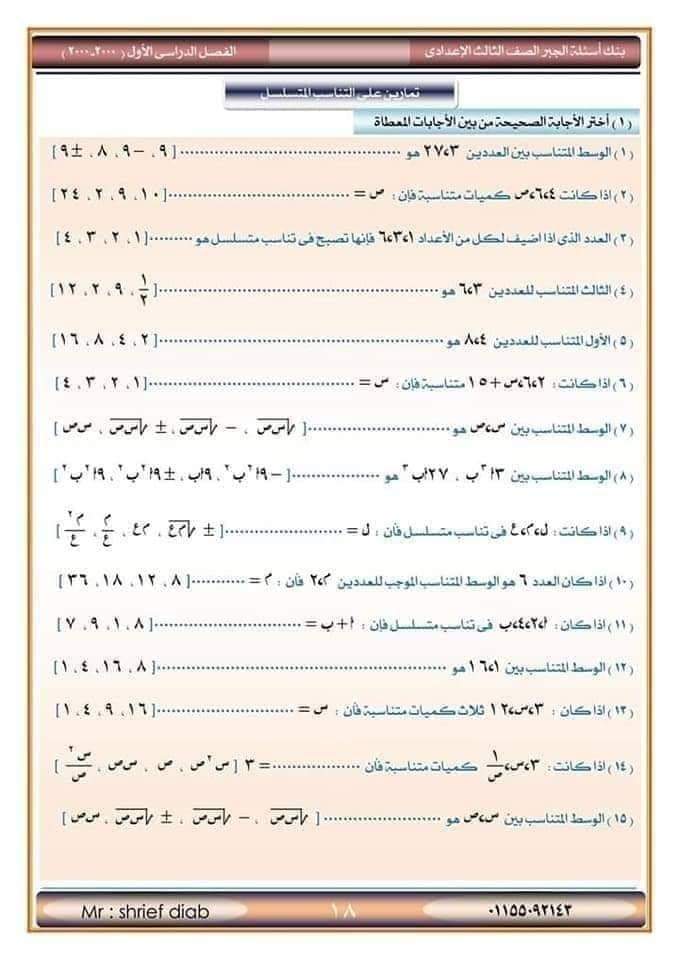 بنك أسئلة الجبر الصف الثالث الإعدادى
الفصل الدراسى الأول ( ٢٠٠٠-٢٠٠٠ )
تمارين على التناسب المتسلسل
(١) أختر الأجابة الصحيحة من بين الأجابات المعطاة
(١) الوسط المتناسب بين العددين ٣،٢٧ هو .......... [ ٩ ، -٩ ، ٨ ، ±٩ ]
(٢) اذا كانت ٤،٦،ص كميات متناسبة فإن : ص = .......... [ ١٠ ، ٩ ، ٢ ، ٢٤ ]
(٣) العدد الذى اذا اضيف لكل من الأعداد ١،٣،٦ فإنها تصبح فى تناسب متسلسل هو .......... [ ١ ، ٢ ، ٣ ، ٤ ]
(٤) الثالث المتناسب للعددين ٣،٦ هو .......... [ ١/٢ ، ٩ ، ٢ ، ١٢ ]
(٥) الأول المتناسب للعددين ٤،٨ هو .......... [ ٢ ، ٤ ، ٨ ، ١٦ ]
(٦) اذا كانت : ٢،٦،س+١٥ متناسبة فإن : س = .......... [ ١ ، ٢ ، ٣ ، ٤ ]
(٧) الوسط المتناسب بين س،ص هو .......... [ √س ص ، -√س ص ، ±√س ص ، س ص ]
(٨) الوسط المتناسب بين ٣أ³ب ، ٢٧أب³ هو .......... [ -٩أ²ب² ، ٩أب ، ±٩أ²ب² ، ٩أ²ب² ]
(٩) اذا كانت : ل،م،ع فى تناسب متسلسل فأن : ل = .......... [ ±√م ع ، م ع ، م/ع ، م²/ع ]
(١٠) اذا كان العدد ٦ هو الوسط المتناسب الموجب للعددين ٢،م فأن : م = .......... [ ٨ ، ١٢ ، ١٨ ، ٣٦ ]
(١١) اذا كان : أ،٢،٤،ب فى تناسب متسلسل فإن : أ+ب = .......... [ ٨ ، ١ ، ٩ ، ٧ ]
(١٢) الوسط المتناسب بين ١،١٦ هو .......... [ ٨ ، ١٦ ، ٤ ، ١ ]
(١٣) اذا كان : ٣،س،١٢ ثلاث كميات متناسبة فأن : س = .......... [ ١٦ ، ٩ ، ٤ ، ١ ]
(١٤) اذا كانت : ٣،س،١/ص كميات متناسبة فأن .......... = ٣ [ س²ص ، ص ، س ص ، س²/ص ]
(١٥) الوسط المتناسب بين س،ص هو .......... [ √س ص ، -√س ص ، ±√س ص ، س ص ]
٠١١٥٥٠٩٢١٤٣
١٨
Mr : shrief diab